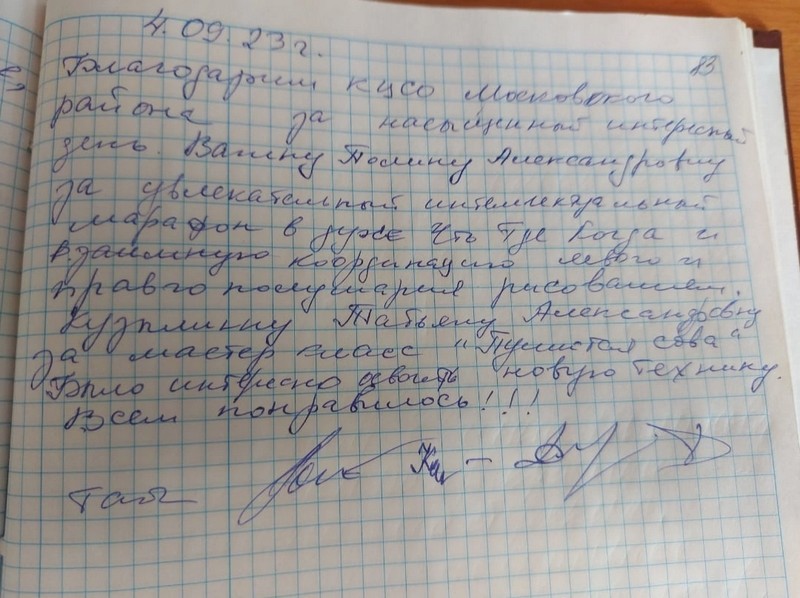 4.09.23 г.
83
Благодарим КЦСО Московского
района за насыщенный интересный
день. Вагину Полину Александровну
за увлекательный интеллектуальный
марафон в духе Что Где Когда и
взаимную координацию левого и
правого полушария рисованием.
Кузьмину Татьяну Александровну
за мастер класс "Пушистая сова"
Было интересно освоить новую технику.
Всем понравилось!!!